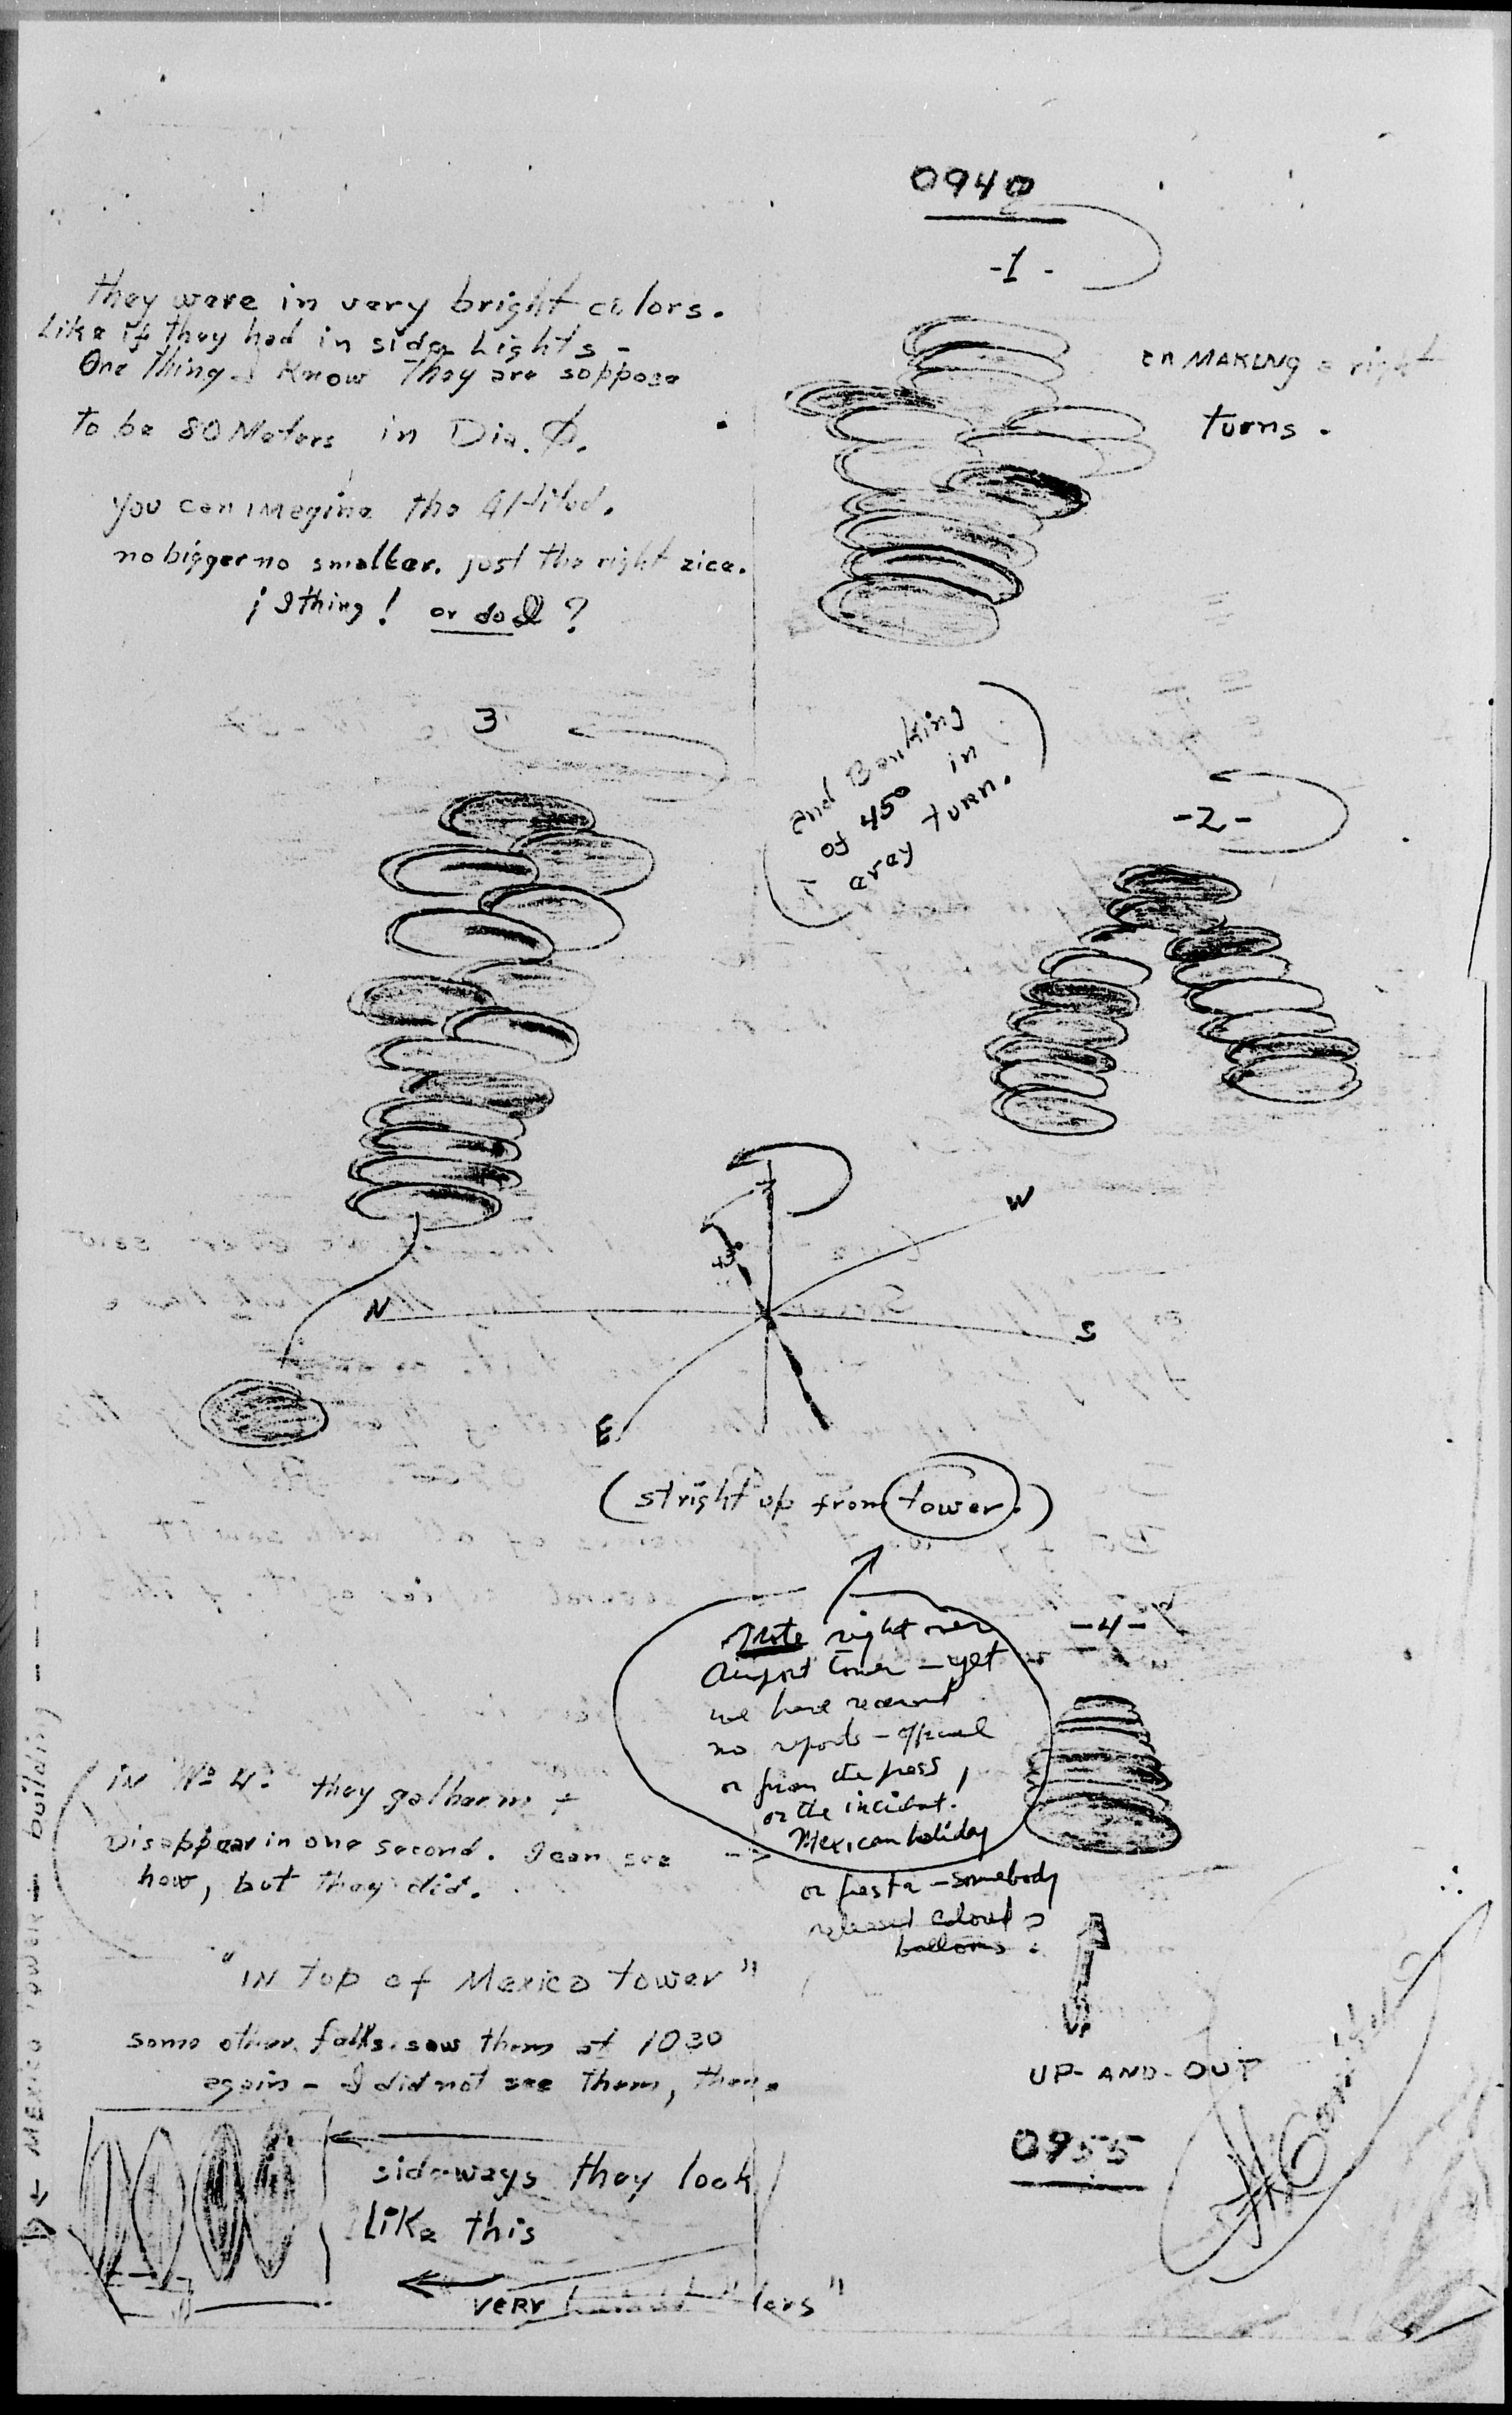 0940
-1-
they were in very bright colors.
Like if they had in side Lights -
One thing I Know They are soppose
to be 80 Meters in Dia. Ø.
you can imagine the Altitud.
no bigger no smaller. just the right zice.
¡ I thing! or do I ?
en MAKING a right
turns.
3
and Banking
of 45° in
avery turn.
-2-
W
45°
N
S
E
(stright up from tower.)
Note right over
Airport tower - yet
we have received
no reports - official
or from the press,
or the incident.
Mexican holiday
or fiesta - somebody
released colored ?
balloons ?
-4-
IN Nº 4: they gather in +
Disappear in one second. I can see
how, but they did.
"IN top of Mexico tower"
some other falks saw them at 1030
again - I did not see them, then.
UP
UP-AND-OUT
0955
sideways they look
Like this
VERY
MEXICO TOWER building ---